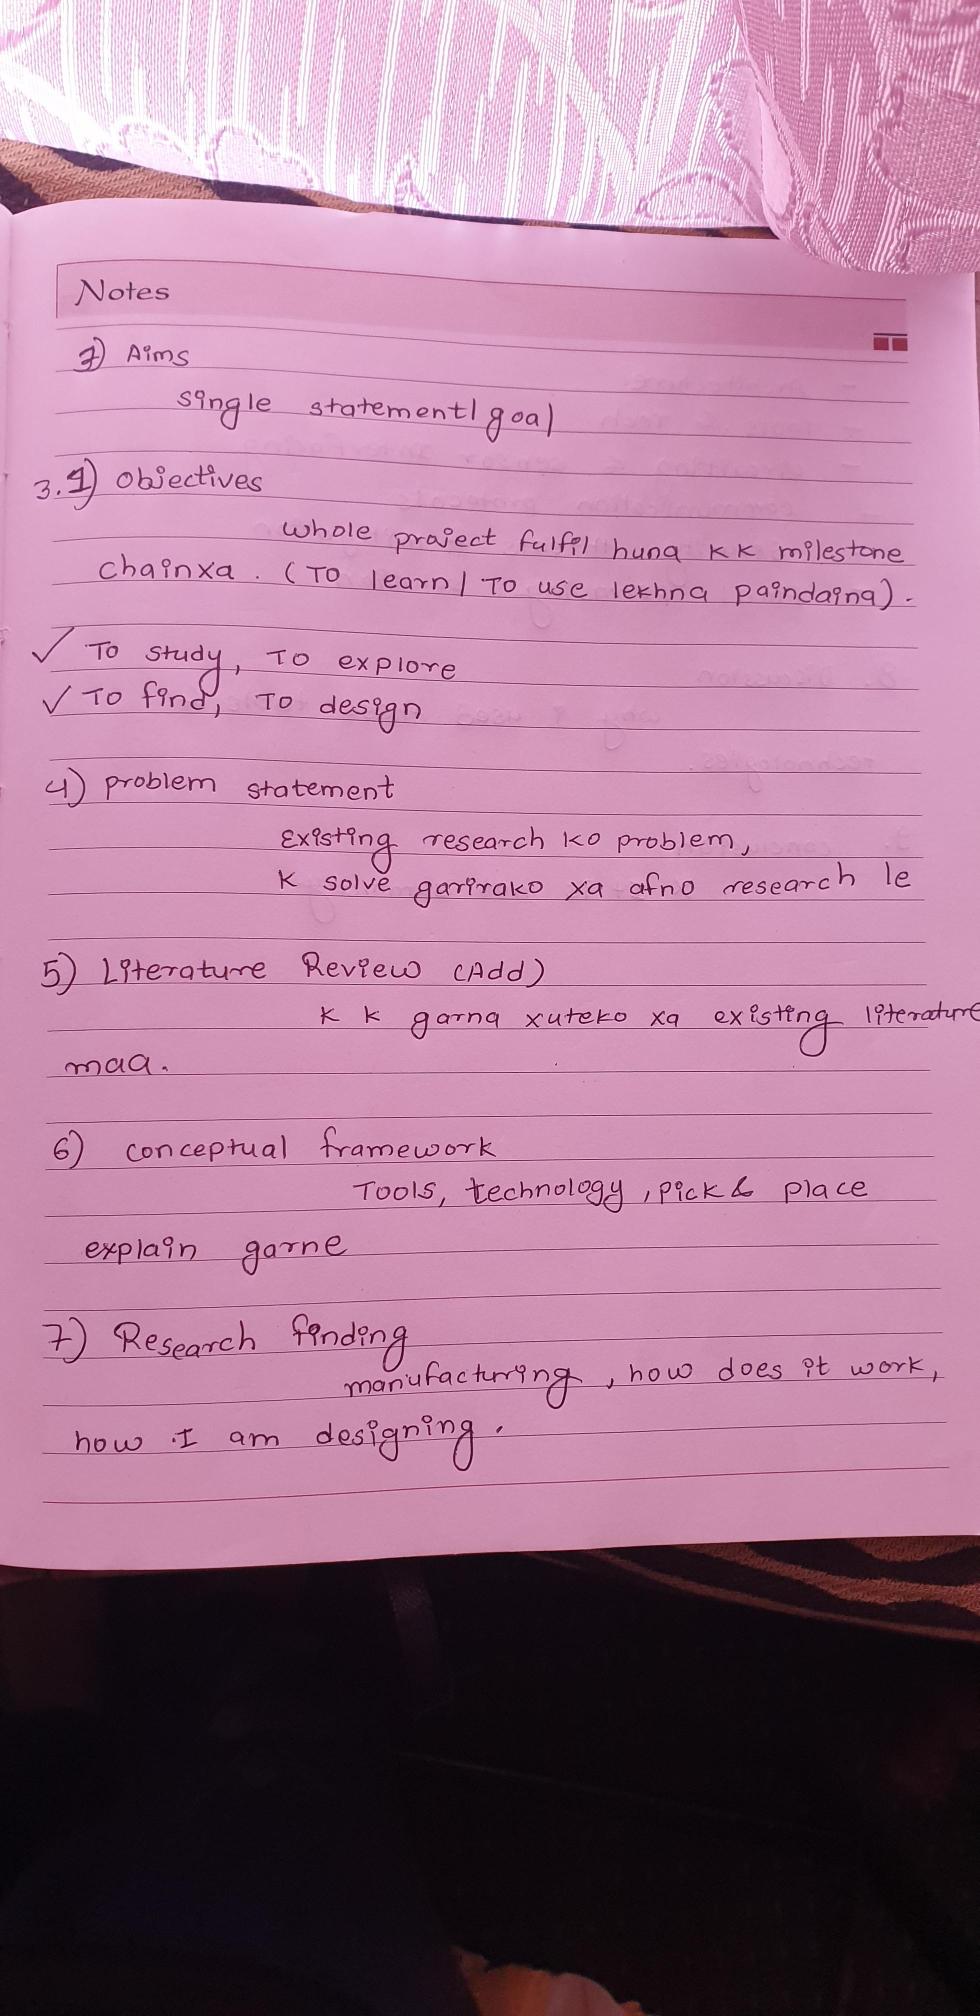 Notes
3) Aims
single statement/goal
3.1) Objectives
whole project fulfil huna kk milestone
chainxa. (To learn/To use lekhna paindaina).
✓ To study, To explore
✓ To find, To design
4) problem statement
Existing research ko problem,
K solve garirako xa afno research le
5) Literature Review (Add)
K k garna xuteko xa existing literature
maa.
6) conceptual framework
Tools, technology, pick & place
explain garne
7) Research finding
manufacturing, how does it work,
how I am designing.